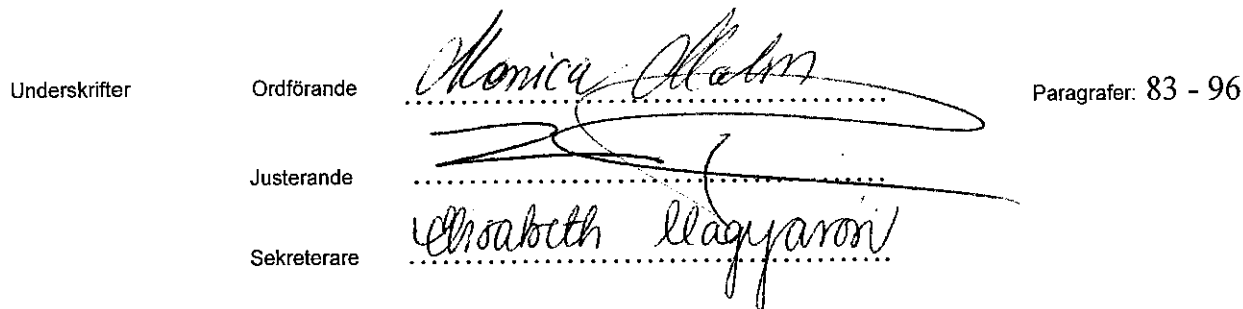 Underskrifter Ordförande Monica Malm Paragrafer: 83 - 96
Justerande
Sekreterare Elisabeth